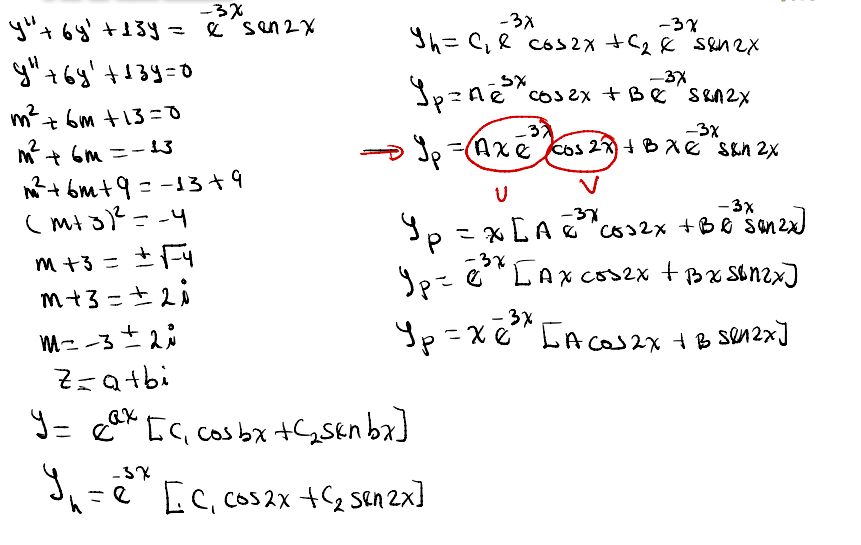 y'' + 6y' + 13y = e^-3x sen2x
y'' + 6y' + 13y = 0
m² + 6m + 13 = 0
m² + 6m = -13
m² + 6m + 9 = -13 + 9
(m + 3)² = -4
m + 3 = ± √-4
m + 3 = ± 2i
m = -3 ± 2i
z = a + bi
y = e^ax [C₁ cos bx + C₂ sen bx]
y_h = e^-3x [C₁ cos 2x + C₂ sen 2x]
y_h = C₁ e^-3x cos 2x + C₂ e^-3x sen 2x
y_p = A e^-3x cos 2x + B e^-3x sen 2x
→ y_p = A x e^-3x cos 2x + B x e^-3x sen 2x
U V
y_p = x [A e^-3x cos 2x + B e^-3x sen 2x]
y_p = e^-3x [A x cos 2x + B x sen 2x]
y_p = x e^-3x [A cos 2x + B sen 2x]